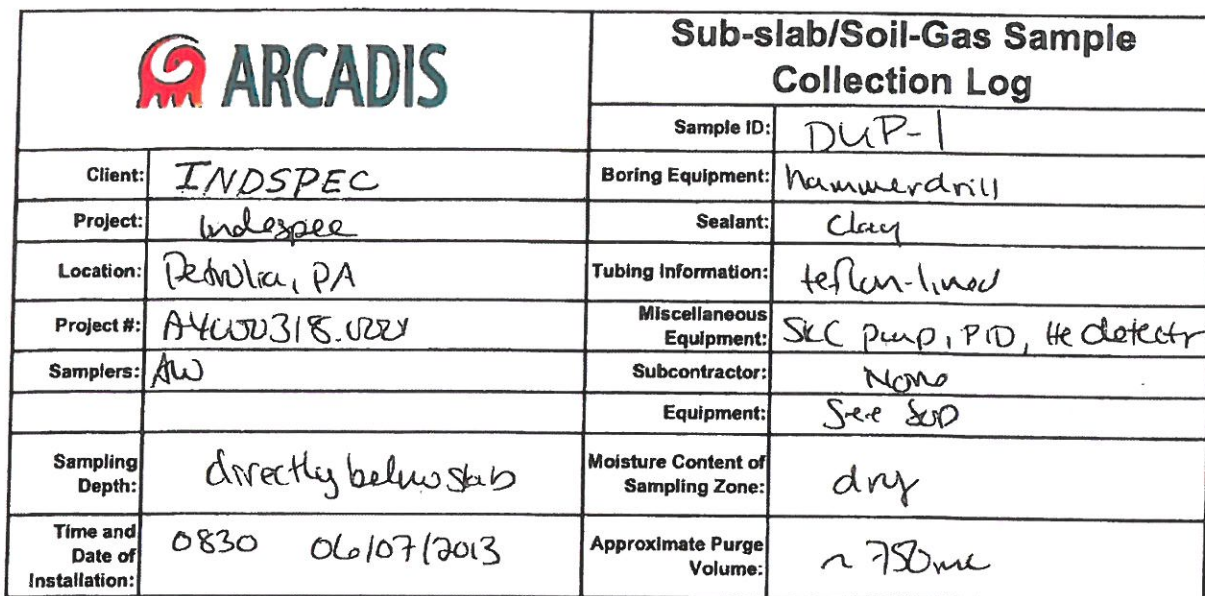 ARCADIS
Sub-slab/Soil-Gas Sample
Collection Log
Sample ID: DUP-1
Client: INDSPEC
Boring Equipment: hammerdrill
Project: Indespec
Sealant: Clay
Location: Petrolia, PA
Tubing Information: teflon-lined
Project #:
Miscellaneous
Equipment: SKC pump, PID, He detectr
Samplers: AW
Subcontractor: None
Equipment: See SOP
Sampling
Depth: directly below slab
Moisture Content of
Sampling Zone: dry
Time and
Date of
Installation: 0830 06/07/2013
Approximate Purge
Volume: ~ 750 mL